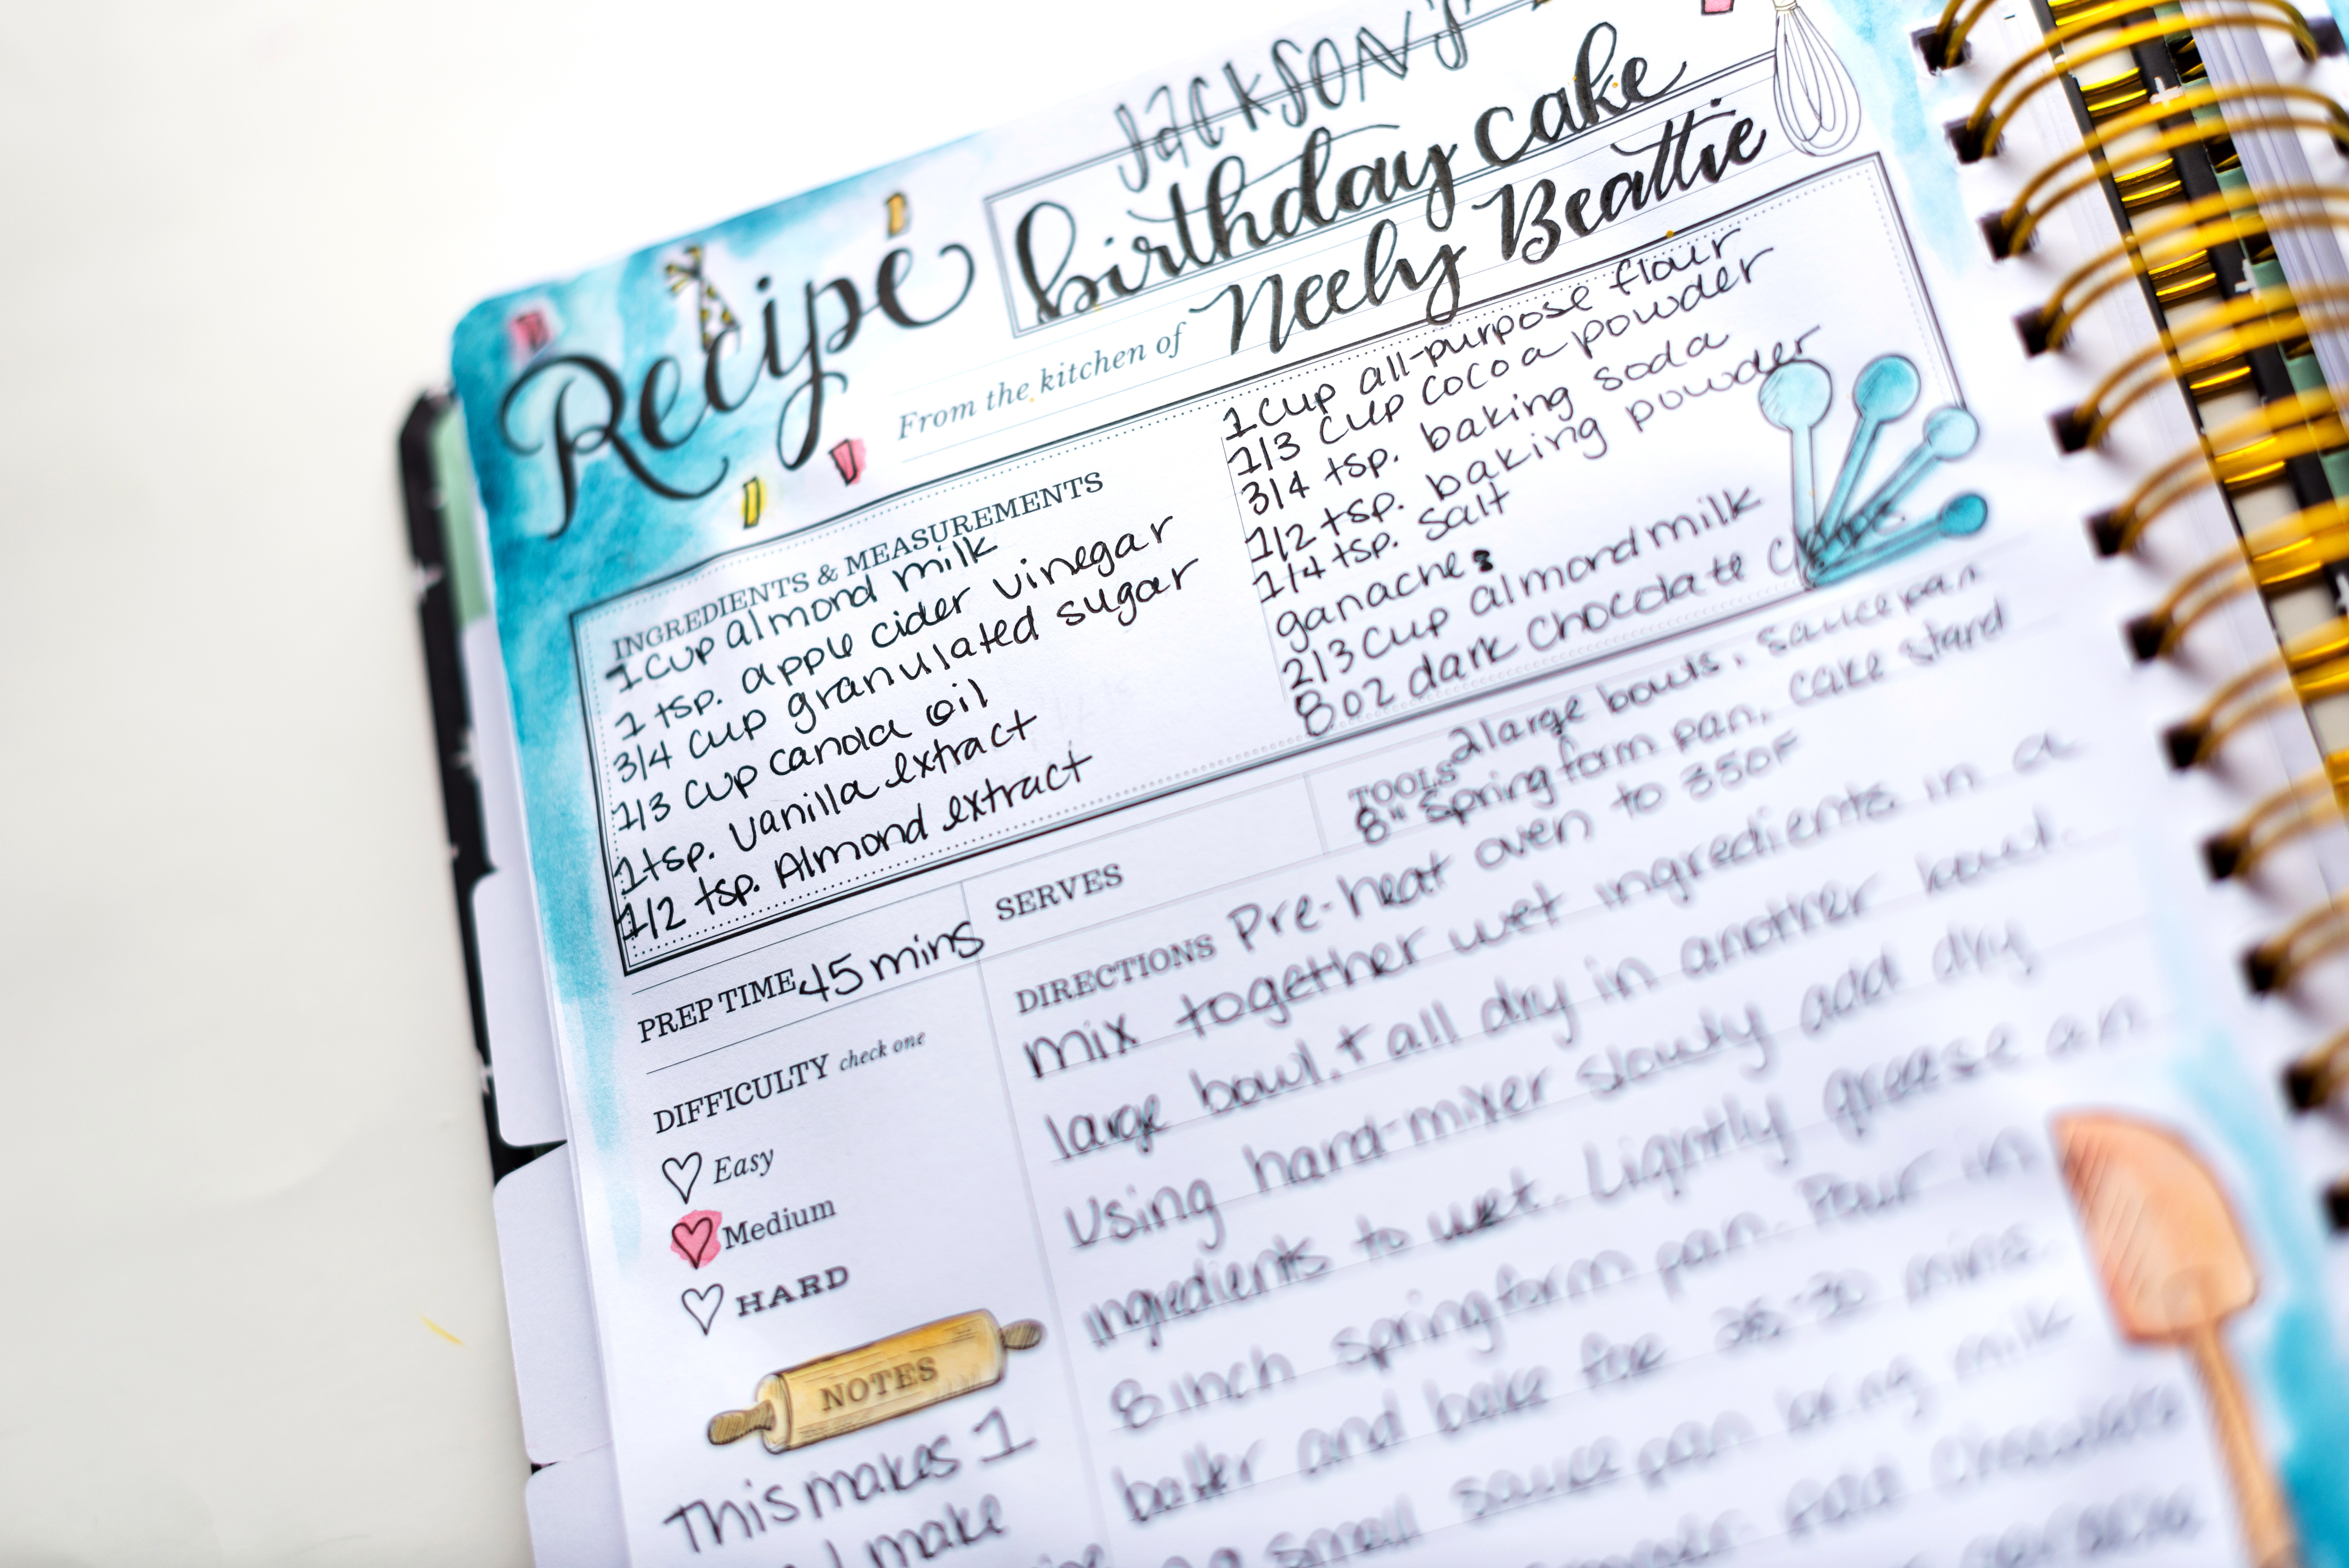 JACKSON'S
Recipe
birthday cake
From the kitchen of Neely Beattie
INGREDIENTS & MEASUREMENTS
1 cup almond milk
1 tsp. apple cider vinegar
3/4 cup granulated sugar
1/3 cup canola oil
1 tsp. vanilla extract
1/2 tsp. Almond extract
1 cup all-purpose flour
1/3 cup cocoa powder
3/4 tsp. baking soda
1/2 tsp. baking powder
1/4 tsp. salt
ganache:
2/3 cup almond milk
8 oz dark chocolate chips.
PREP TIME 45 mins
SERVES
TOOLS 2 large bowls, saucepan
8" springform pan, cake stand
DIFFICULTY check one
Easy
Medium
HARD
NOTES
This makes 1
I make
DIRECTIONS Pre-heat oven to 350F
mix together wet ingredients in a
large bowl. + all dry in another bowl.
Using hand-mixer slowly add dry
ingredients to wet. Lightly grease an
8 inch springform pan. Pour in
batter and bake for 28-30 mins.
small sauce pan bring milk
add chocolate